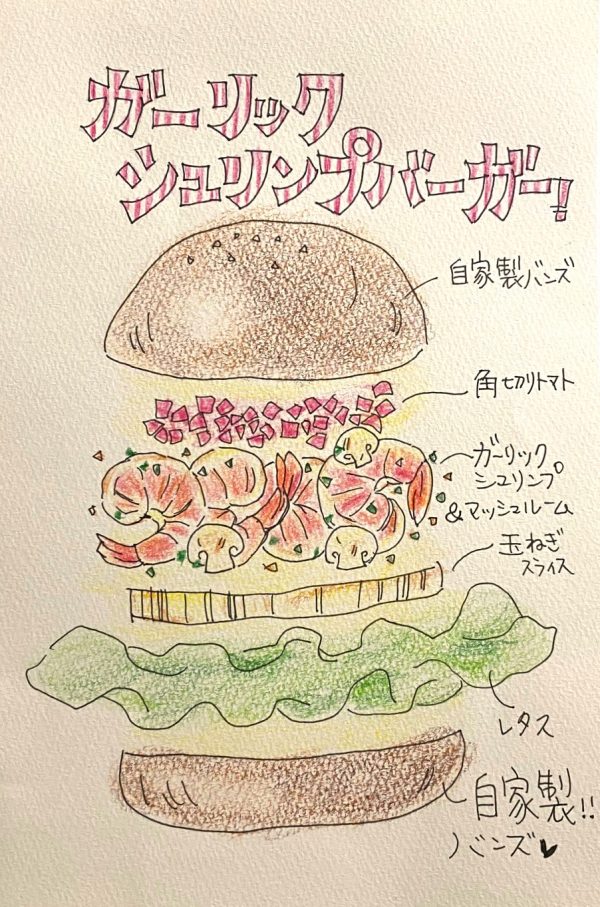 ガーリック
シュリンプバーガー!
自家製バンズ
角切りトマト
ガーリック
シュリンプ
&マッシュルーム
玉ねぎ
スライス
レタス
自家製!!
バンズ♥